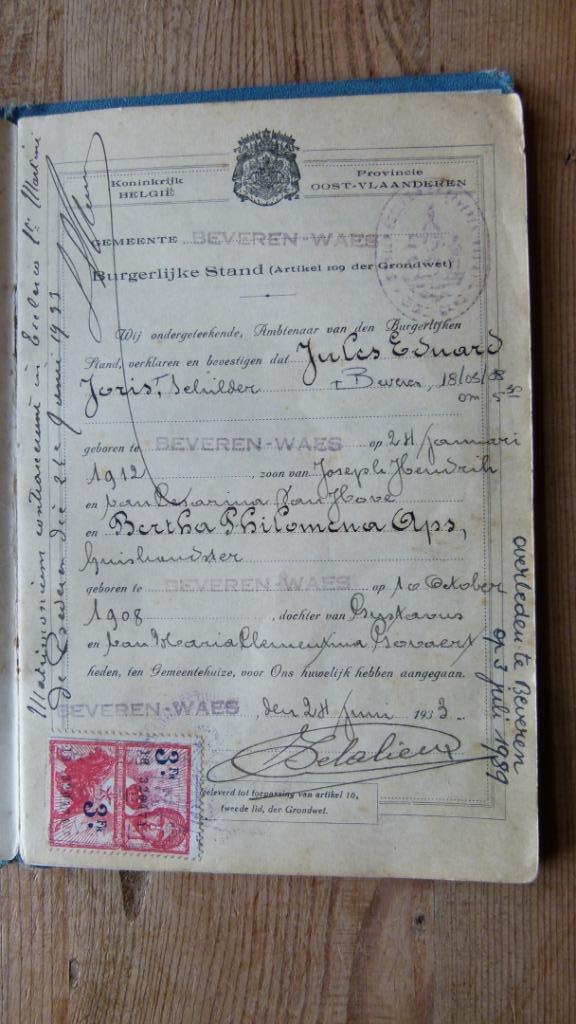 Koninkrijk
BELGIË
Provincie
OOST-VLAANDEREN
GEMEENTE BEVEREN-WAES
Burgerlijke Stand (Artikel 109 der Grondwet)
Wij ondergeteekende, Ambtenaar van den Burgerlijken
Stand, verklaren en bevestigen dat Jules Eduard
Joris, Schilder
+ Beveren, 18/05/88
om 5
geboren te BEVEREN-WAES op 24 januari
1912, zoon van Joseph Hendrik
en van Van Hove
en Bertha Philomena Aps,
huishoudster
geboren te BEVEREN-WAES op 10 October
1908, dochter van Gustavus
en van Maria Clementina Govaert
heden, ten Gemeentehuize, voor Ons huwelijk hebben aangegaan.
BEVEREN-WAES, den 24 Juni 1933.
geleverd tot toepassing van artikel 16,
tweede lid, der Grondwet.
Matrimonium contraxerunt in Ecclesia Sti Martini
de Beveren die Junii 1933
overleden te Beveren
op 3 juli 1989
3 Fr
3 Fr